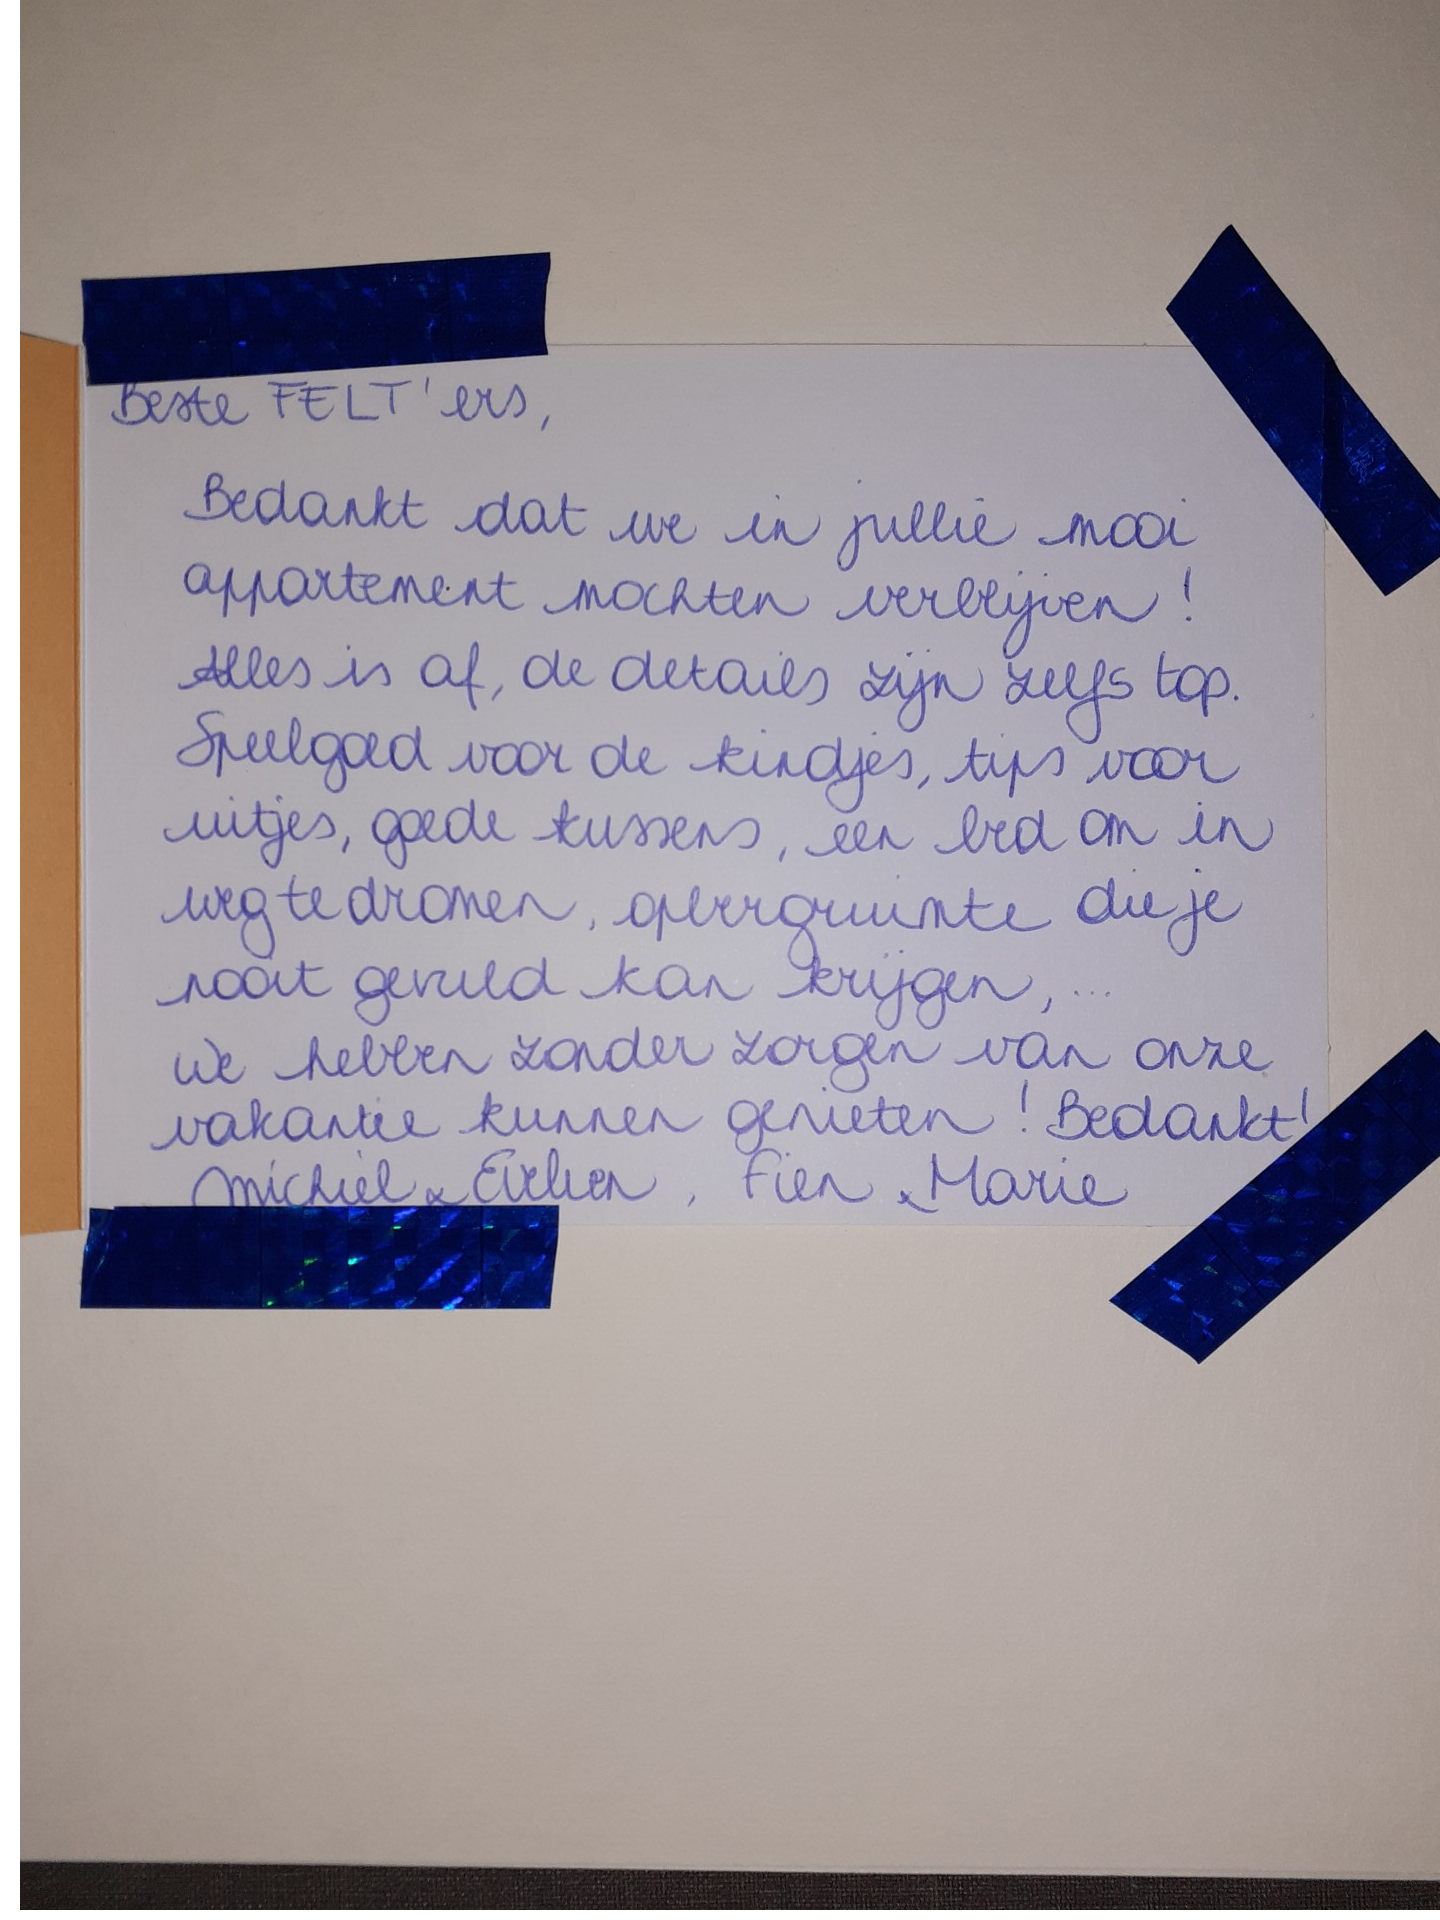 Beste FELT'ers,
Bedankt dat we in jullie mooi
appartement mochten verblijven!
Alles is af, de details zijn zelfs top.
Speelgoed voor de kindjes, tips voor
uitjes, goede kussens, een bed om in
weg te dromen, opbergruimte die je
nooit gevuld kan krijgen, ...
We hebben zonder zorgen van onze
vakantie kunnen genieten! Bedankt!
Michiel & , Fien & Marie